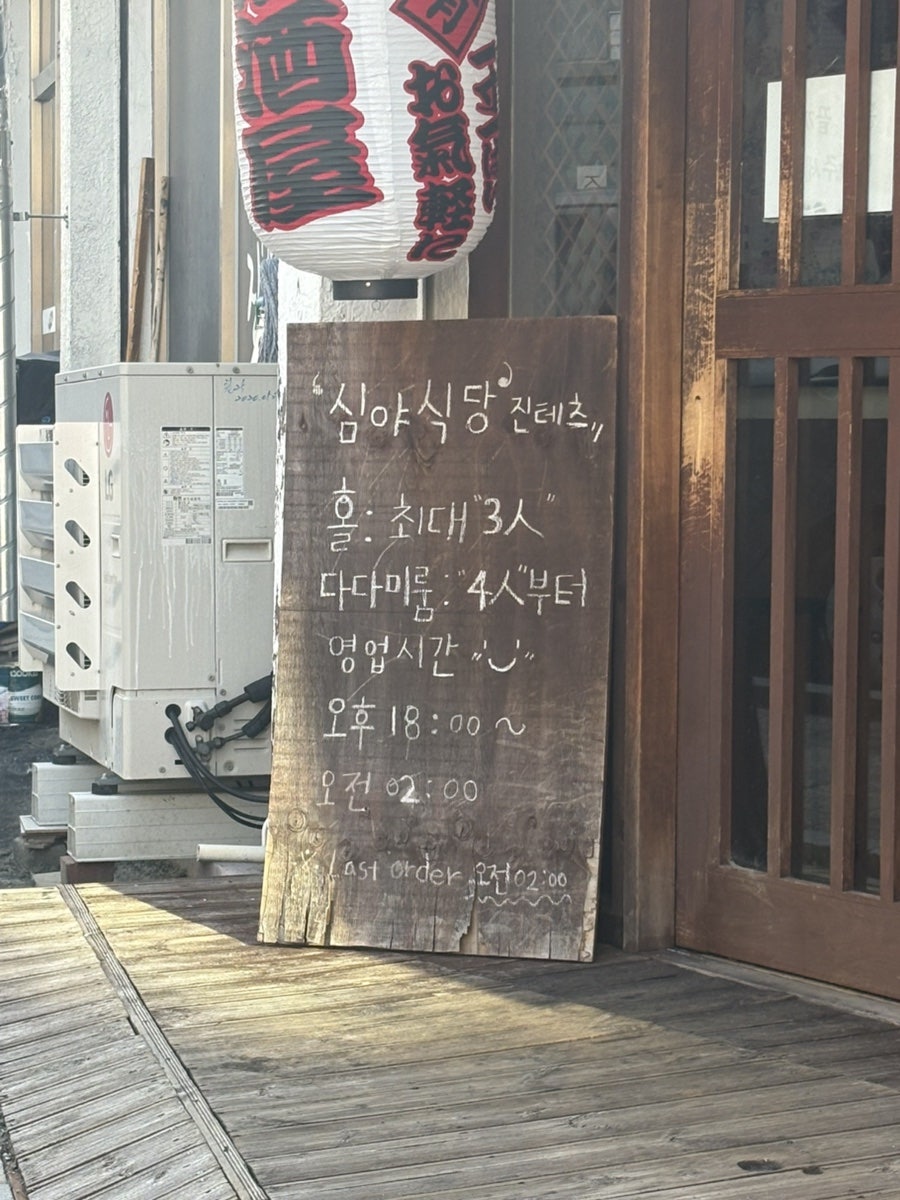 酒屋
お気軽に
"심야식당" 진테츠"
홀: 최대 "3人"
다다미룸: "4人"부터
영업시간
오후 18:00 ~
오전 02:00
Last order 오전 02:00
LG